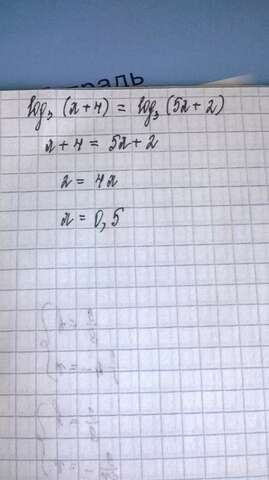 традь
log₃ (x+4) = log₃ (5x+2)
x+4 = 5x+2
2 = 4x
x = 0,5